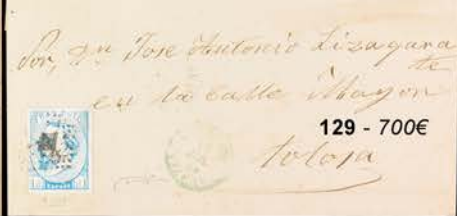 Por, Dn Jose Antonio Lizagara
te
en la Calle Mayor
129 - 700€
tolosa